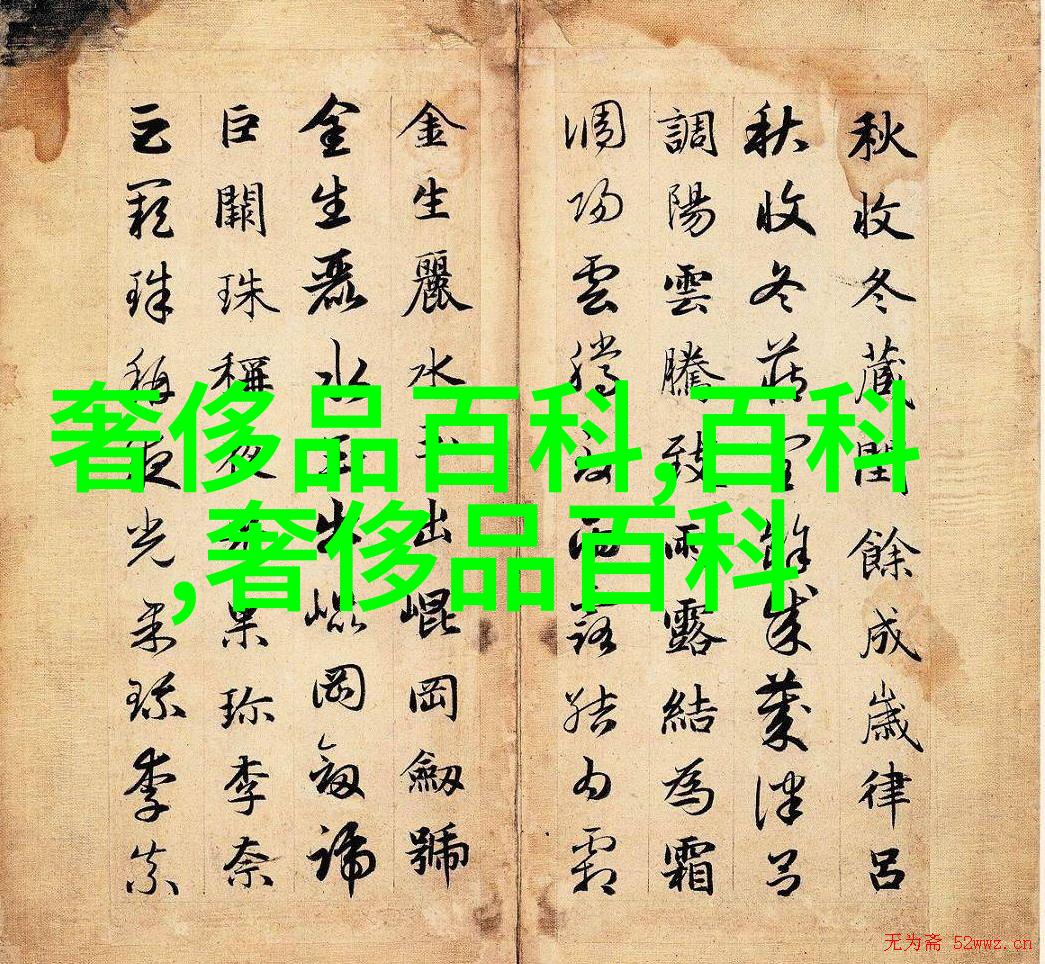 秋收冬蔵閏餘成嵗律呂
秋收冬藏閏餘成歲律呂
調陽雲騰致雨露結為霜
調陽雲騰致雨露結為霜
金生麗水玉出崐岡劔號
金生麗水玉出崐岡劔號
巨闕珠稱夜光果珎李柰
巨闕珠稱夜光果珎李柰
奢侈品百科,百科
,奢侈品百科
无为斋 52wwz.cn